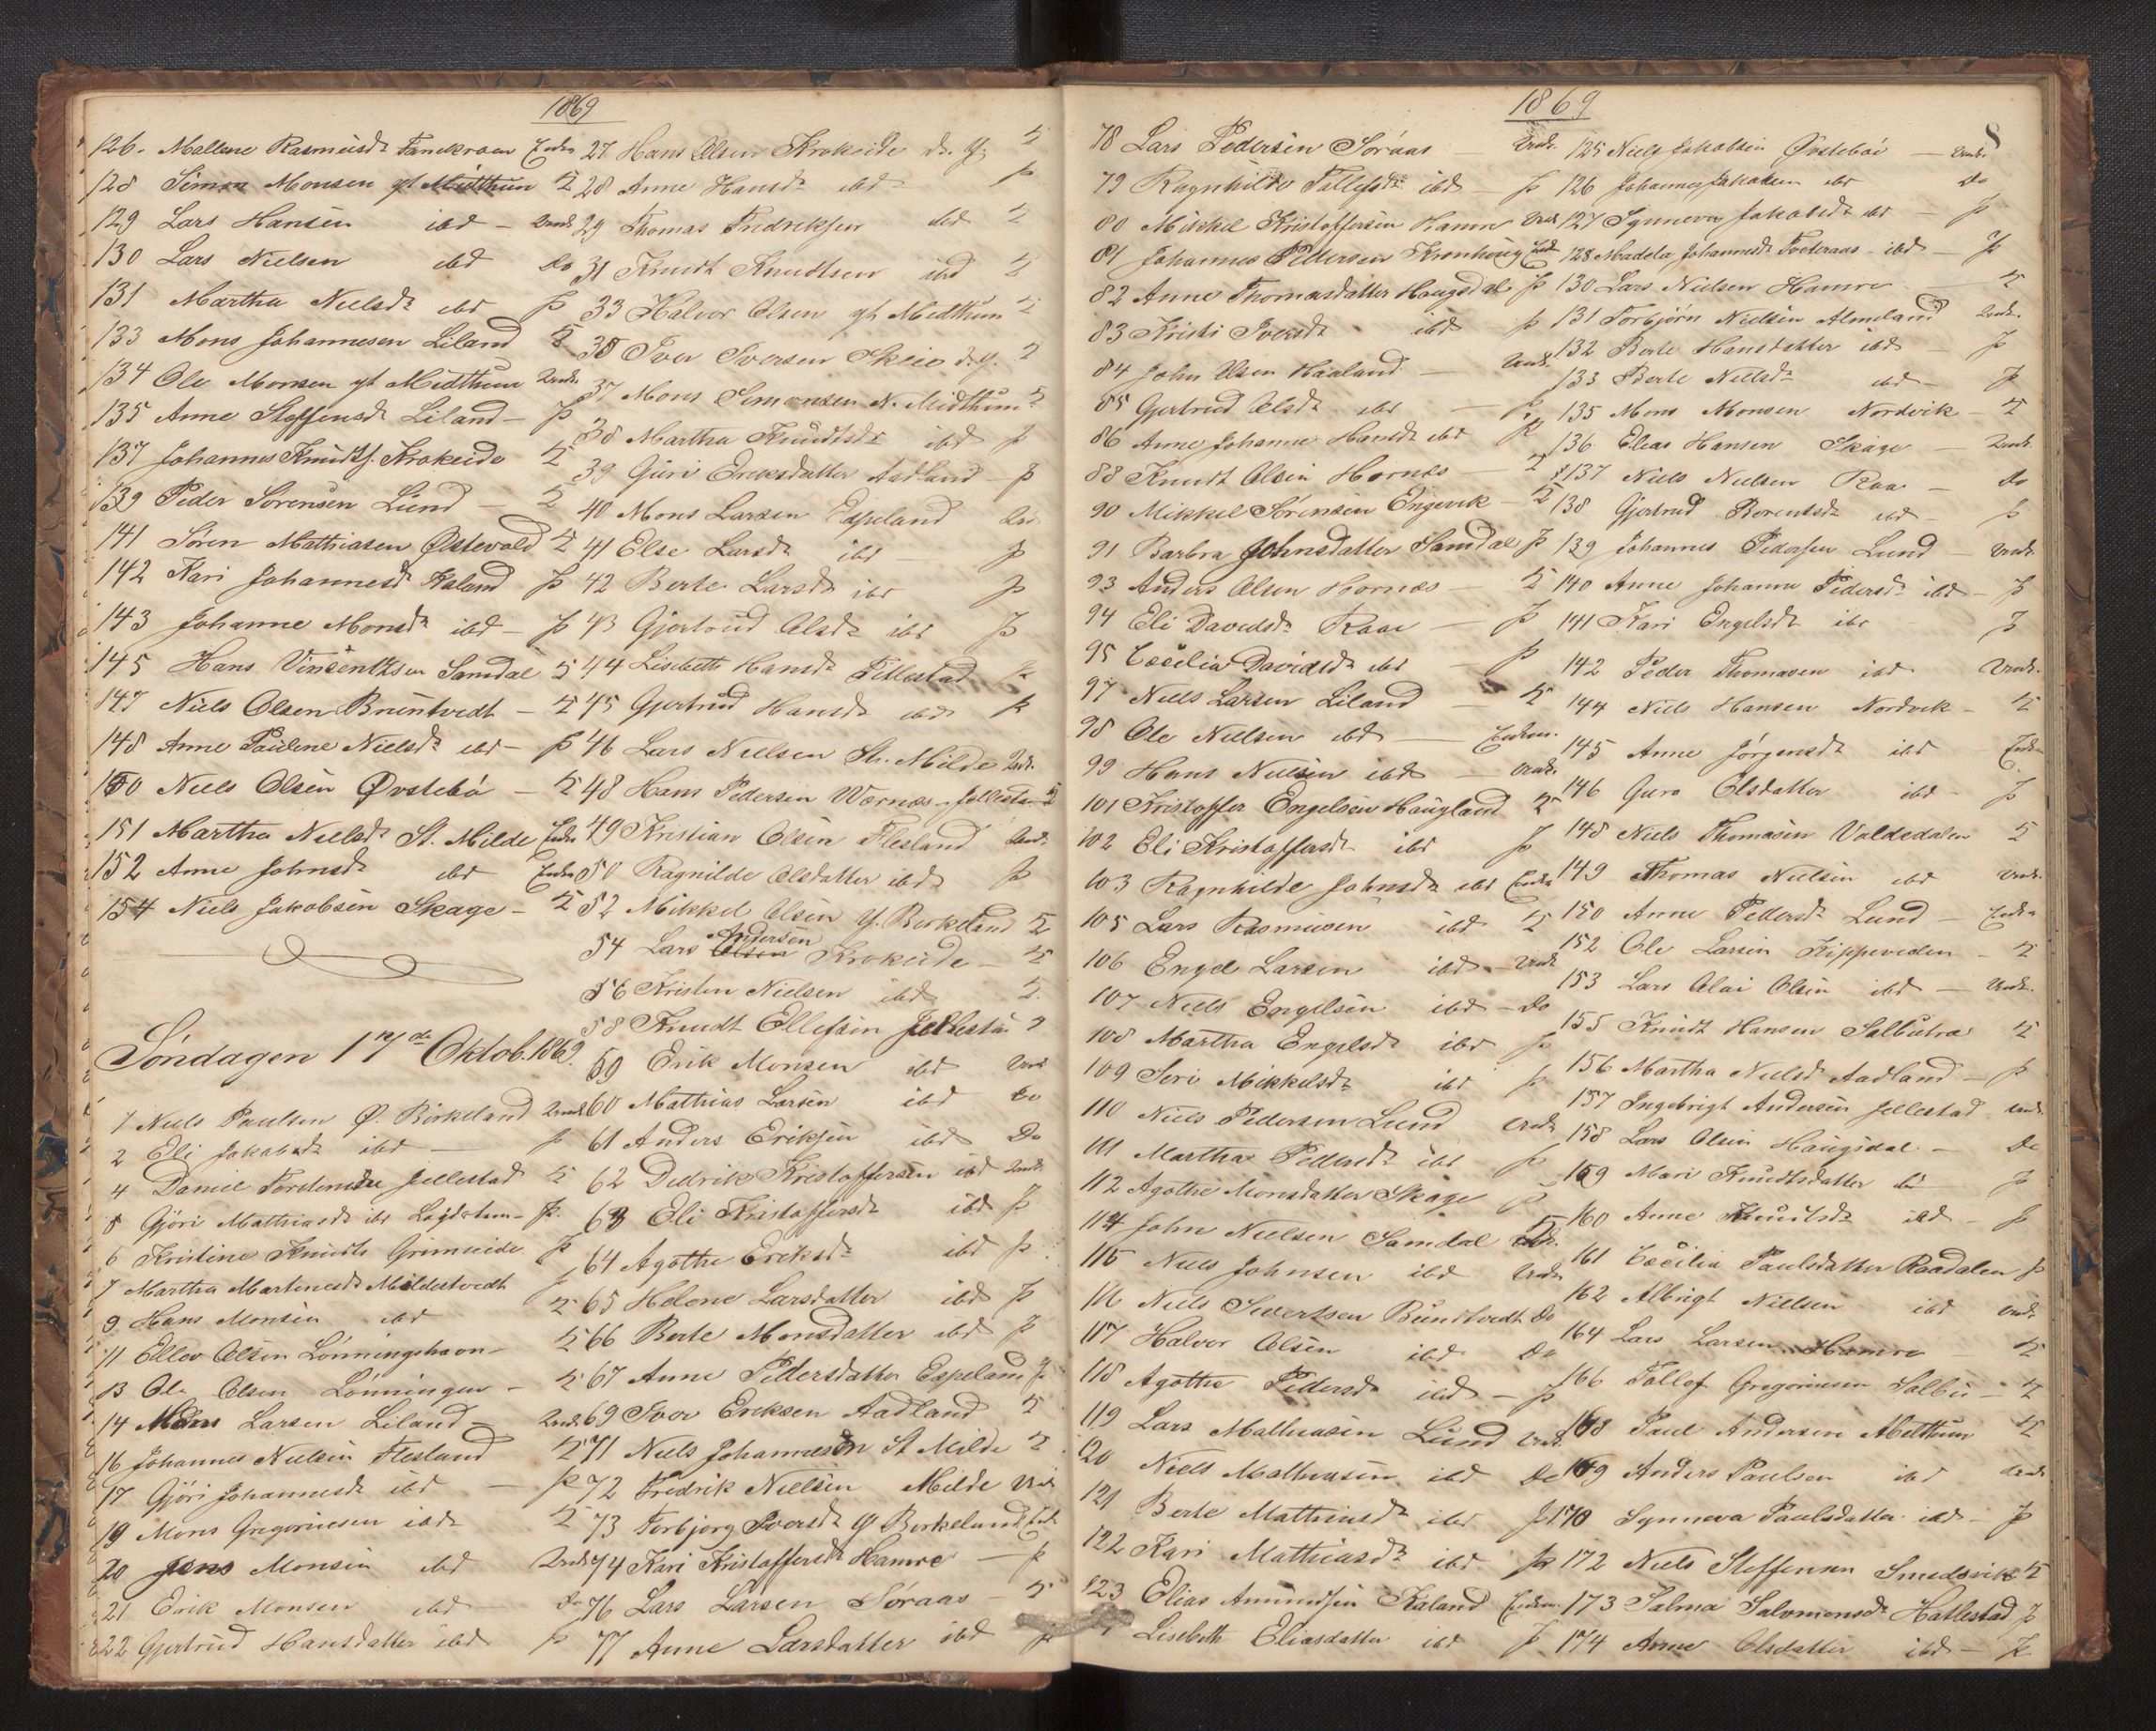 1869
126. Mallene Rasmusdr Fanekraen Enke
128 Simon Monsen yt Midthun
129 Lars Hansen ibd – Undr
130 Lars Nielsen ibd Do
131 Martha Nielsdr ibd p
133 Mons Johannesen Liland
134 Ole Monsen yt Midthun Undr
135 Anne Steffensdr Liland – p
137 Johannes Knudts. Krokeide
139 Peder Sørensen Lund –
141 Søren Mathiasen Østevold
142 Kari Johannesdr Kaland p
143 Johanne Monsdr ibd – p
145 Hans Vinsentksen Samdal
147 Niels Olsen Bruntvedt –
148 Anne Pauline Nielsdr ibd – p
150 Niels Olsen Øvstebø –
151 Martha Nielsdr St. Milde Enke
152 Anne Johnsdr ibd Enke
154 Niels Jakobsen Skage –
Søndagen 17de Oktob. 1869.
1 Niels Paulsen Ø. Birkeland Undr
2 Eli Jakobsdr ibd – p
4 Daniel Torstensen Jellestad
5 Gjøri Mathiasdr ibd – p
6 Kristine Knudts Grimseide p
7 Martha Martinesdr Mildestvedt p
9 Hans Monsen ibd
11 Ellev Olsen Lønningshavn –
13 Ole Olsen Lønningen –
14 Mons Larsen Liland – Undr
16 Johannes Nielsen Flesland
17 Gjøri Johannesdr ibd – p
19 Mons Gregoriusen ibd
20 Jens Monsen ibd Undr
21 Erik Monsen ibd – Do
22 Gjertrud Hansdatter ibd p
27 Hans Olsen Krokeide d. y.
28 Anne Hansdr ibd p
29 Thomas Fredriksen ibd
31 Knudt Knudtsen ibd
33 Halvor Olsen yt Midthun
35 Iver Iversen Skeie d. y.
37 Mons Simonsen N. Midthun
38 Martha Knudtsdr ibd p
39 Guri Eriksdatter Aadland – p
40 Mons Larsen Espeland
41 Else Larsdr ibd p
42 Berte Larsdr ibd p
43 Gjertrud Olsdr ibd p
44 Lisebeth Hansdr Titlestad p
45 Gjertrud Hansdr ibd p
46 Lars Nielsen St. Milde Undr
48 Hans Pedersen Wernæs – Jellestad
49 Kristian Olsen Flesland Undr
50 Ragnilde Olsdatter ibd p
52 Mikkel Olsen Y. Berkeland
54 Lars Olsen Andersen Krokeide –
56 Kristen Nielsen ibd
58 Knudt Ellefsen Jellestad
59 Erik Monsen ibd Undr
60 Mathias Larsen ibd Do
61 Anders Eriksen ibd Do
62 Didrik Kristoffersen ibd Undr
63 Eli Kristoffersdr ibd p
64 Agothe Eriksdr ibd p
65 Helene Larsdatter ibd p
66 Berte Monsdatter ibd p
67 Anne Pedersdatter Espeland p
69 Iver Eriksen Aadland
71 Niels Johannesen St Milde
72 Fredrik Nielsen Milde Undr
73 Torbjorg Iversdr Y Berkeland Enk
74 Kari Kristoffersdr Hamre – p
76 Lars Larsen Søraas –
77 Anne Larsdatter ibd p
1869
8
78 Lars Pedersen Søraas – Undr.
79 Ragnhilde Tollefsdr ibd – p
80 Mikkel Kristoffersen Hamre Undr
81 Johannes Pedersen Kronhoug Enk
82 Anne Thomasdatter Haugsdal p
83 Kristi Iversdr ibd p
84 John Olsen Haaland – Undr.
85 Gjertrud Olsdr ibd – p
86 Anne Johanne Hansdr ibd p
88 Knudt Olsen Hornæs –
90 Mikkel Sørensen Engevik –
91 Barbra Johnsdatter Samdal p
93 Anders Olsen Hornæs –
94 Eli Davidsdr Raae – p
95 Cecilia Davidsdr ibd – p
97 Niels Larsen Liland –
98 Ole Nielsen ibd – Enkem.
99 Hans Nielsen ibd – Undr.
101 Kristoffer Engelsen Haugland
102 Eli Kristoffersdr ibd p
103 Ragnhilde Johnsdr ibd Enke
105 Lars Rasmusen ibd
106 Engel Larsen ibd – Undr
107 Niels Engelsen ibd – Do
108 Martha Engelsdr ibd p
109 Seri Mikkelsdr ibd p
110 Niels Pedersen Lund Undr
111 Martha Pedersdr ibd p
112 Agothe Monsdatter Skage p
114 John Nielsen Samdal
115 Niels Johnsen ibd Undr
116 Niels Sivertsen Bundtvedt Do
117 Halvor Olsen ibd Do
118 Agothe Pedersdr ibd – p
119 Lars Mathiasen Lund Undr.
120 Niels Mathiasen ibd Do
121 Berte Mathiasdr ibd p
122 Kari Mathiasdr ibd p
123 Elias Amundsen Kaland Enkem.
Lisebeth Eliasdatter ibd p
125 Niels Jakobsen Øvstebø – Undr.
126 Johannes Jakobsen ibd Do
127 Synneva Jakobsdr ibd – p
128 Madela Johannesdr Tveteraas – ibd – p
130 Lars Nielsen Hamre
131 Torbjørn Nielsen Almeland Undr.
132 Berte Hansdatter ibd – p
133 Berte Nielsdr ibd – p
135 Mons Monsen Nordvik –
136 Elias Hansen Skage – Undr
137 Niels Nielsen Raa – Do
138 Gjertrud Berentsdr ibd – p
139 Johannes Pedersen Lund – Undr.
140 Anne Johanne Pedersdr ibd – p
141 Kari Engelsdr ibd p
142 Peder Thomasen ibd Undr.
144 Niels Hansen Nordvik –
145 Anne Jørgensdr ibd Enke
146 Guro Olsdatter ibd – p
148 Niels Thomasen Valdedalen
149 Thomas Nielsen ibd Undr.
150 Anne Pedersdr Lund – Enke
152 Ole Larsen Kippereden –
153 Lars Olai Olsen ibd – Undr.
155 Knudt Hansen Salbutræ
156 Martha Nielsdr Aadland – p
157 Ingebrigt Andersen Jellestad Undr.
158 Lars Olsen Haugsdal – Do
159 Mari Knudtsdatter ibd p
160 Anne Knudtsdr ibd – p
161 Cecilia Paulsdatter Raadalen p
162 Albrigt Nielsen ibd Undr.
164 Lars Larsen Hamre –
166 Tollef Gregoriusen Salbu –
168 Paul Andersen Melthun
169 Anders Paulsen ibd Undr
170 Synneva Paulsdatter ibd – p
172 Niels Steffensen Smedsvik
173 Salma Salomonsdr Hatlestad p
174 Anne Olsdatter ibd – p